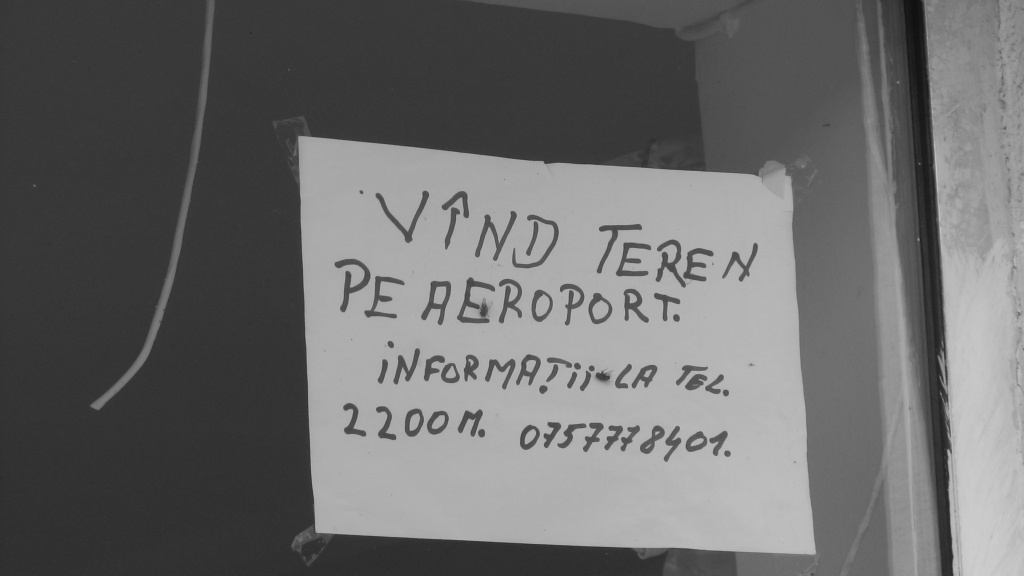 VÎND TEREN
PE AEROPORT.
iNFORMAȚii LA TEL.
2200M. 0757778401.